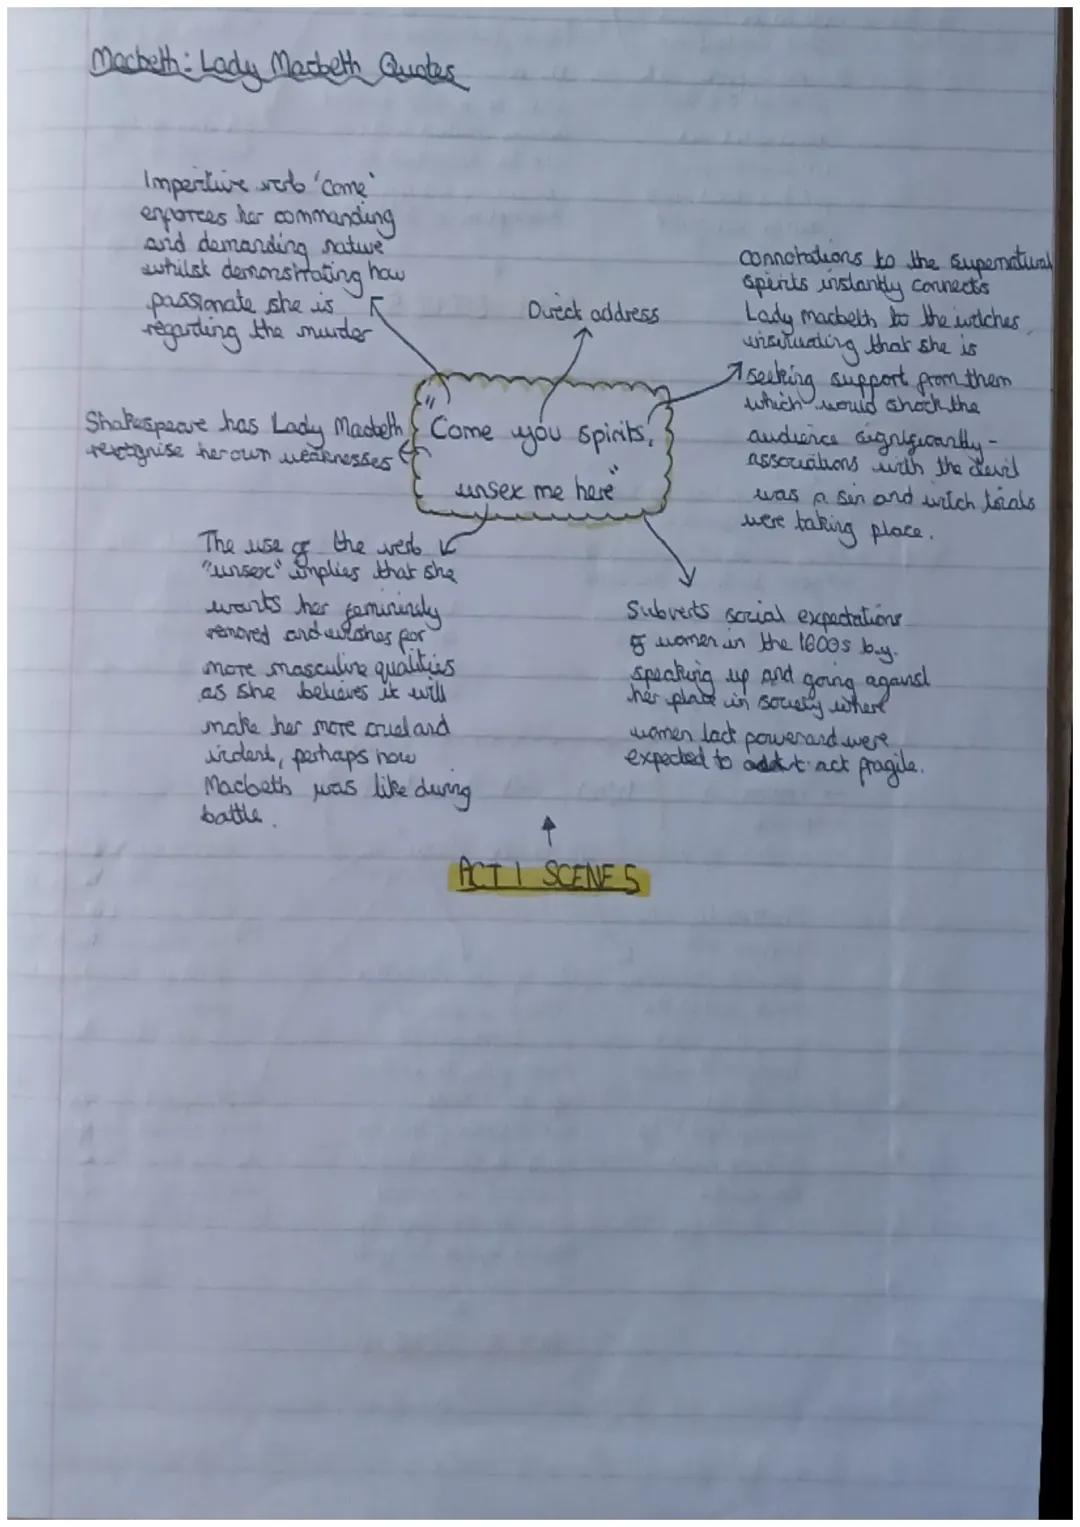 Macbeth: Lady Macbeth Quotes
Impertive verb 'come'
enforces her commanding
and demanding nature
whilst demonstrating how
passionate she is
regarding the murder
Direct address
connotations to the supernatural
spirits instantly connects
Lady macbeth to the witches
insinuating that she is
seeking support from them
which would shock the
audience significantly -
associations with the devil
was a sin and witch trials
were taking place.
Shakespeare has Lady Macbeth
recognise her own weaknesses
"Come you spirits,
unsex me here"
The use of the verb
"unsex" implies that she
wants her femininely
removed and wishes for
more masculine qualities
as she believes it will
make her more cruel and
violent, perhaps how
Macbeth was like during
battle.
Subverts social expectations
of women in the 1600s by
speaking up and going against
her place in society where
women lack power and were
expected to act fragile.
ACT 1 SCENE 5